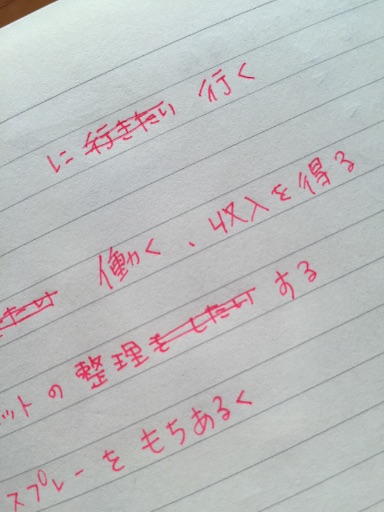 に行きたい 行く
たい 働く、収入を得る
ットの整理をしたい ある
スプレーをもちあるく